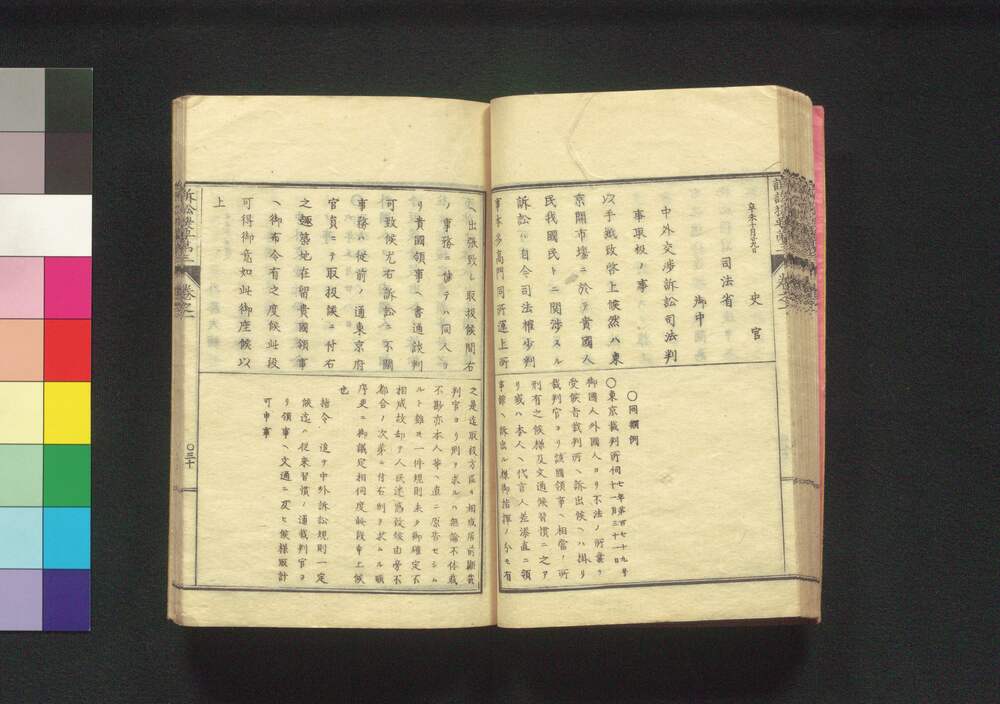 辛未十月廿九日
史官
司法省
御中
中外交渉訴訟司法判
事取扱ノ事
以手紙致啓上候然ハ東
京開市塲ニ於テ貴國人
民我國民トニ関渉スル
訴訟ハ自今司法権少判
事本多高門同所運上所
ヘ出張致シ取扱候間右
ノ事務ニ付テハ同人ヨ
リ貴國領事ヘ書通談判
可致候尤右訴訟ニ不關
事務ハ従前ノ通東京府
官員ニテ取扱候ニ付右
之趣築地在留貴國領事
ヘ御布令有之度候此段
可得御意如此御座候以
上
〇同擱例
〇東京裁判所伺七年第百七十九号
十一月三十一日
御國人外國人ヨリ不法ノ所業ヲ
受候者裁判所ヘ訴出候ヘハ掛リ
裁判官ヨリ該國領事ヘ相當ノ所
刑有之候様及文通候習慣ニ之ア
リ或ハ本人ヘ代言人並添直ニ領
事館ヘ訴出ル様御指揮ノ分モ有
之是迄取扱方區々相成居前顕裁
判官ヨリ刑ヲ求ルハ無論不体裁
不尠亦本人等ヘ直ニ原告セシム
ルト雖モ一件規則未タ御確定不
相成故却テ人民迷惑致候由旁不
都合ノ次第ニ付右刑ヲ求ムル順
序更ニ御議定相伺度此段申上候
也
指令 追テ中外訴訟規則一定
候迄ハ従来習慣ノ通裁判官ヨ
リ領事ヘ文通ニ及ヒ候様取計
可申事
〇三十
訴訟必携第三
卷之一